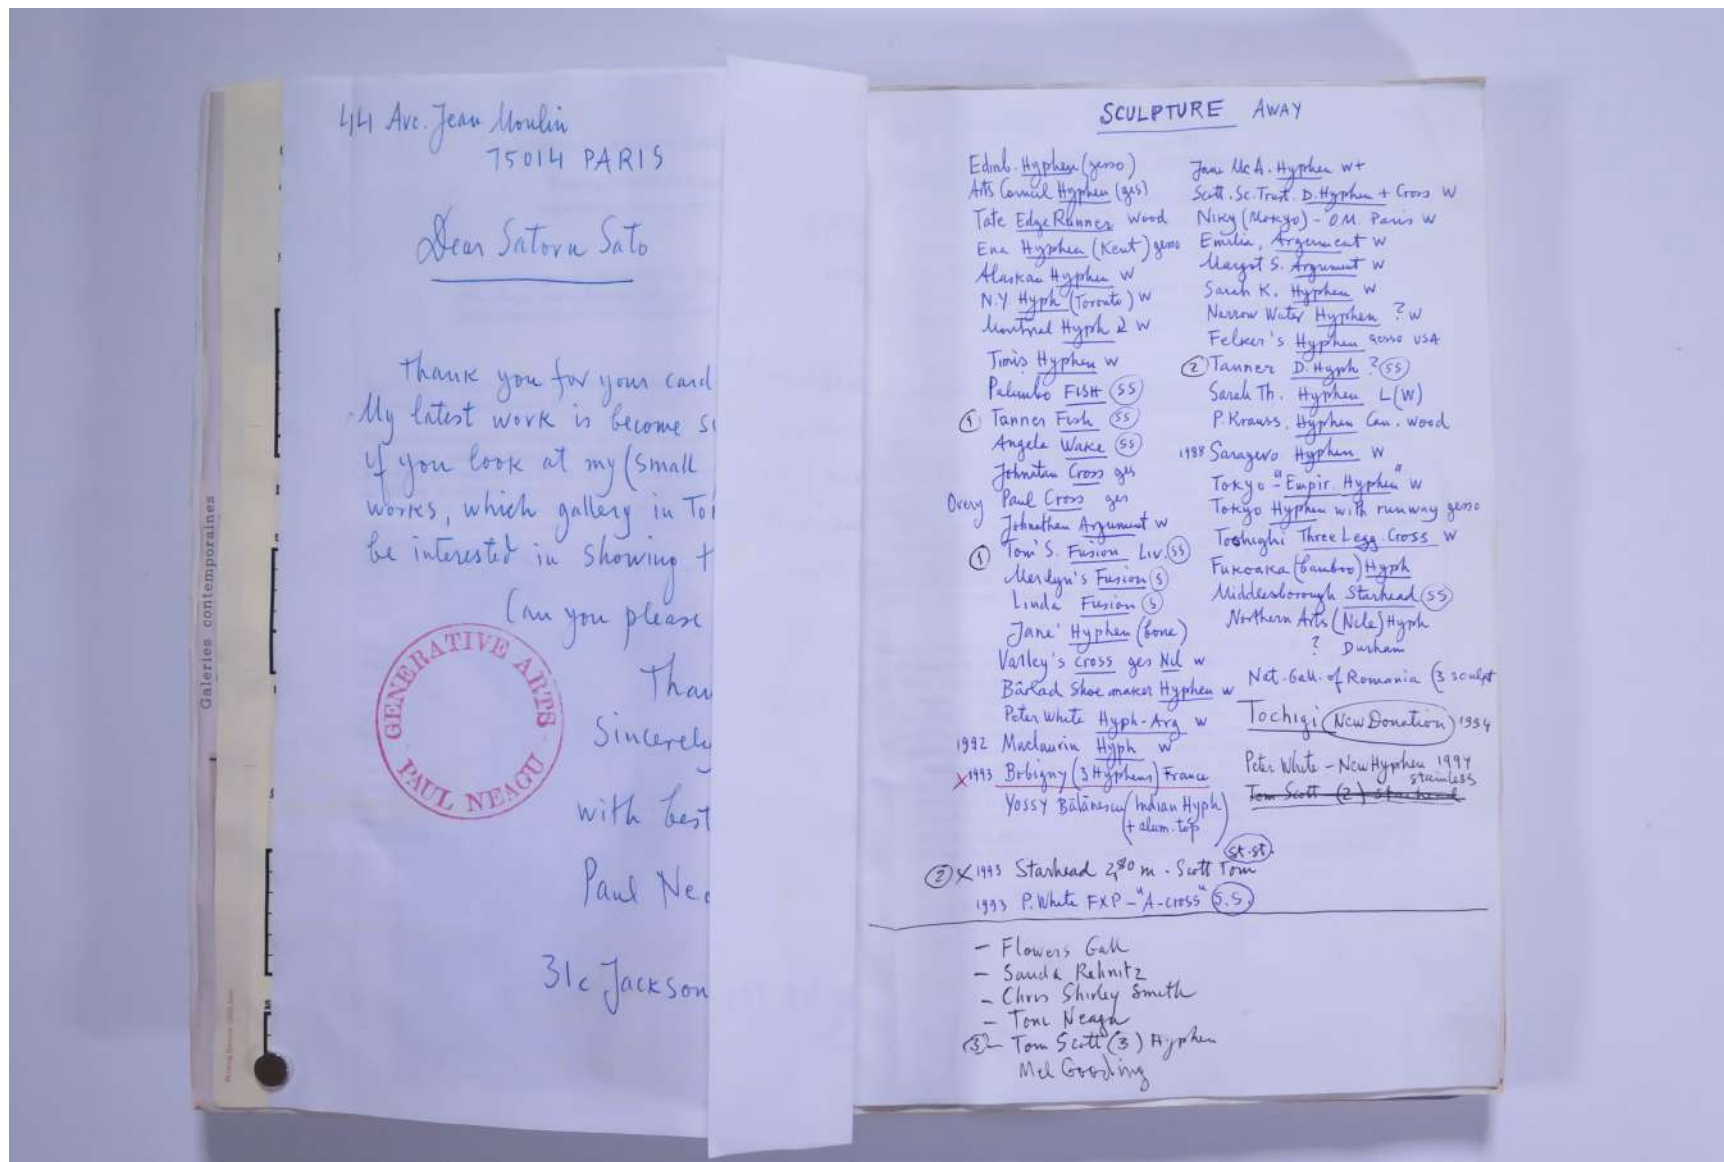 Galeries contemporaines
44 Ave. Jean Moulin
75014 PARIS
Dear Satoru Sato
Thank you for your card
My latest work is become s
if you look at my (small
works, which gallery in To
be interested in showing t
Can you please
Than
Sincerely
with best
Paul Nea
31c Jackson
GENERATIVE ARTS
PAUL NEAGU
SCULPTURE AWAY
Edinb. Hyphen (gesso)
Arts Council Hyphen (ges)
Tate EdgeRunner wood
Ena Hyphen (Kent) gesso
Alaskan Hyphen W
N.Y Hyph (Toronto) W
Montreal Hyph 2 W
Timis Hyphen W
Palumbo FISH (SS)
(1) Tanner Fish (SS)
Angela Wake (SS)
Johnatan Cross ges
Overy Paul Cross ges
Johnathan Argument W
(1) Tom'S. Fusion Liv. (SS)
Merilyn's Fusion (S)
Linda Fusion (S)
Jane' Hyphen (bone)
Varley's Cross ges Nil w
Bârlad Shoe maker Hyphen w
Peter White Hyph-Arg w
1992 Maclaurin Hyph w
X 1993 Bobigny (3 Hyphens) France
Yossy Bălănescu (Indian Hyph
+ alum. top)
Jane McA. Hyphen W+
Scott. Sc. Trust. D. Hyphen + Cross W
Niky (Morkyo) - O.M. Paris W
Emilia, Argument W
Margot S. Argument W
Sarah K. Hyphen W
Narrow Water Hyphen ? W
Felker's Hyphen gesso USA
(2) Tanner D. Hyph ? (SS)
Sarah Th. Hyphen L (W)
P. Krauss, Hyphen Can. wood
1988 Saragevo Hyphen W
Tokyo - "Empir. Hyphen" W
Tokyo Hyphen with runway gesso
Tochighi Three Legg. Cross W
Fukoaka (bamboo) Hyph
Middlesborough Starhead (SS)
Northern Arts (Ncle) Hyph
? Durham
Nat. Gall. of Romania (3 sculpt
Tochigi (New Donation) 1994
Peter White - New Hyphen 1994
stainless
Tom Scott (2) Starhead
st.st.
(2) X 1993 Starhead 2,80 m - Scott Tom
1993 P. White FXP - "A-cross" (S.S.)
- Flowers Gall
- Sanda Rehnitz
- Chris Shirley Smith
- Toni Neagu
(3) - Tom Scott (3) Hyphen
Mel Gooding